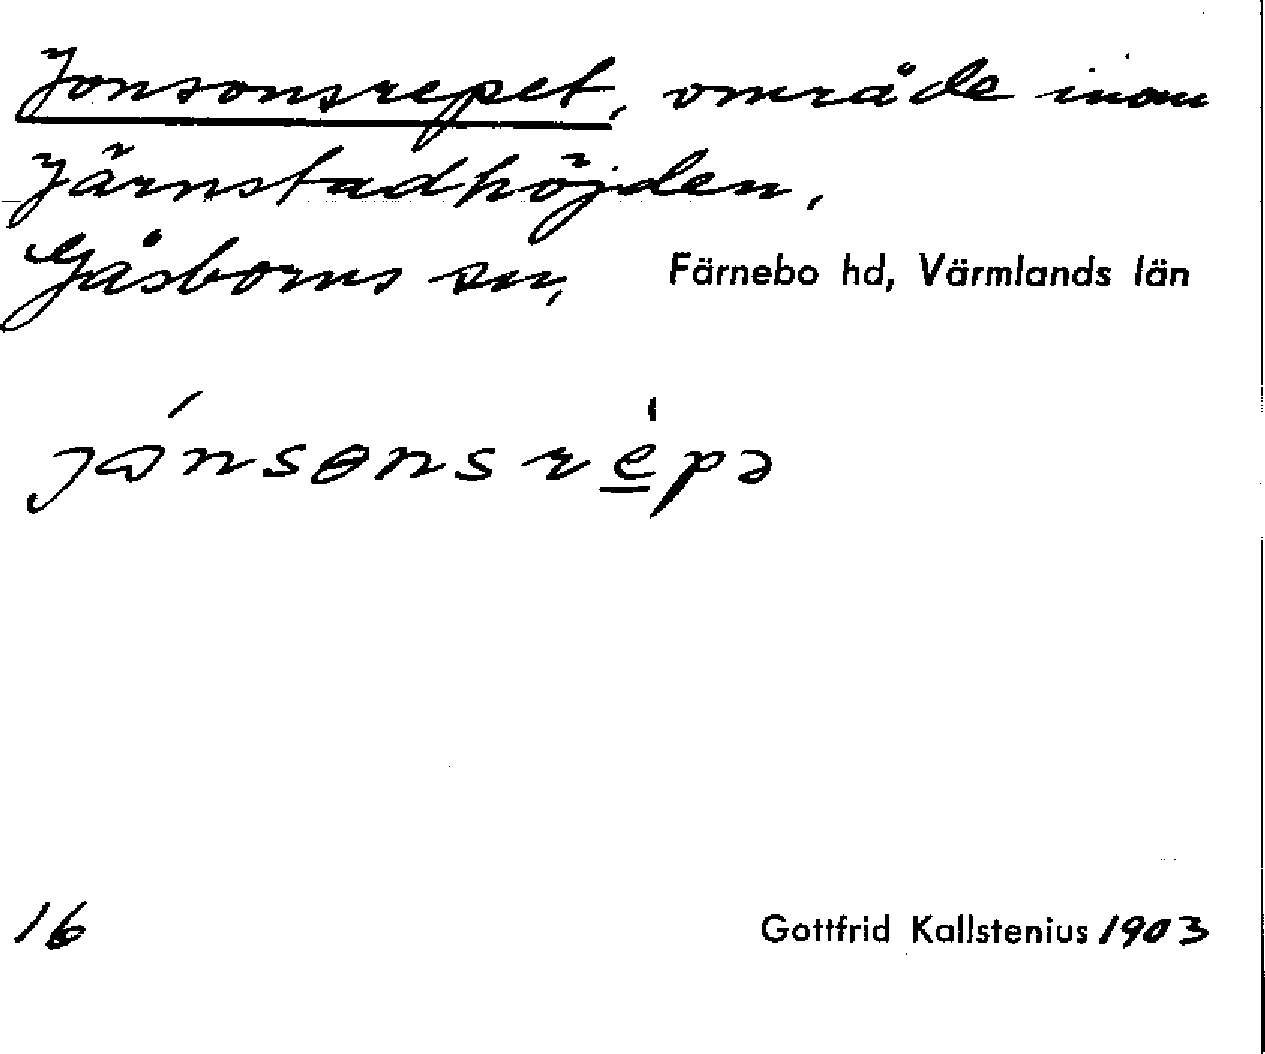 Jonsonsrepet, område inom
Järnstadhöjden,
Gåsborns sn, Färnebo hd, Värmlands län
jónsɵnsrépə
16 Gottfrid Kallstenius 1903